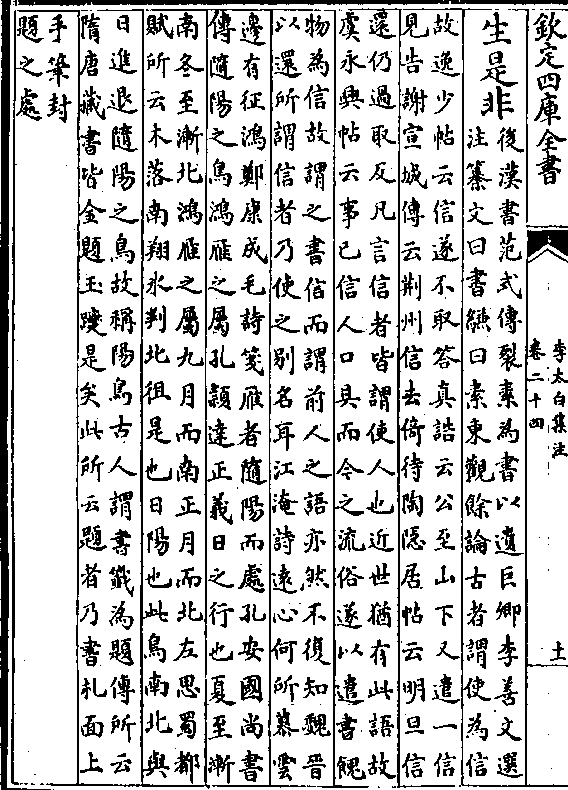 欽定四庫全書
李太白集注
卷二十四
十
生是非
後漢書范式傳裂素為書以遺巨卿李善文選
注纂文曰書縑曰素東觀餘論古者謂使為信
故逸少帖云信遂不取答真誥云公至山下又遣一信
見告謝宣城傳云荆州信去倚待陶隱居帖云明旦信
還仍過取反凡言信者皆謂使人也近世猶有此語故
虞永興帖云事已信人口具而今之流俗遂以遺書餽
物為信故謂之書信而謂前人之語亦然不復知魏晉
以還所謂信者乃使之别名耳江淹詩遠心何所慕雲
邊有征鴻鄭康成毛詩箋雁者隨陽而處孔安國尚書
傳隨陽之鳥鴻雁之屬孔頴達正義日之行也夏至漸
南冬至漸北鴻雁之屬九月而南正月而北左思蜀都
賦所云木落南翔氷判北徂是也日陽也此鳥南北與
日進退隨陽之鳥故稱陽鳥古人謂書籤為題傳所云
隋唐藏書皆金題玉躞是矣此所云題者乃書札面上
手筆封
題之處